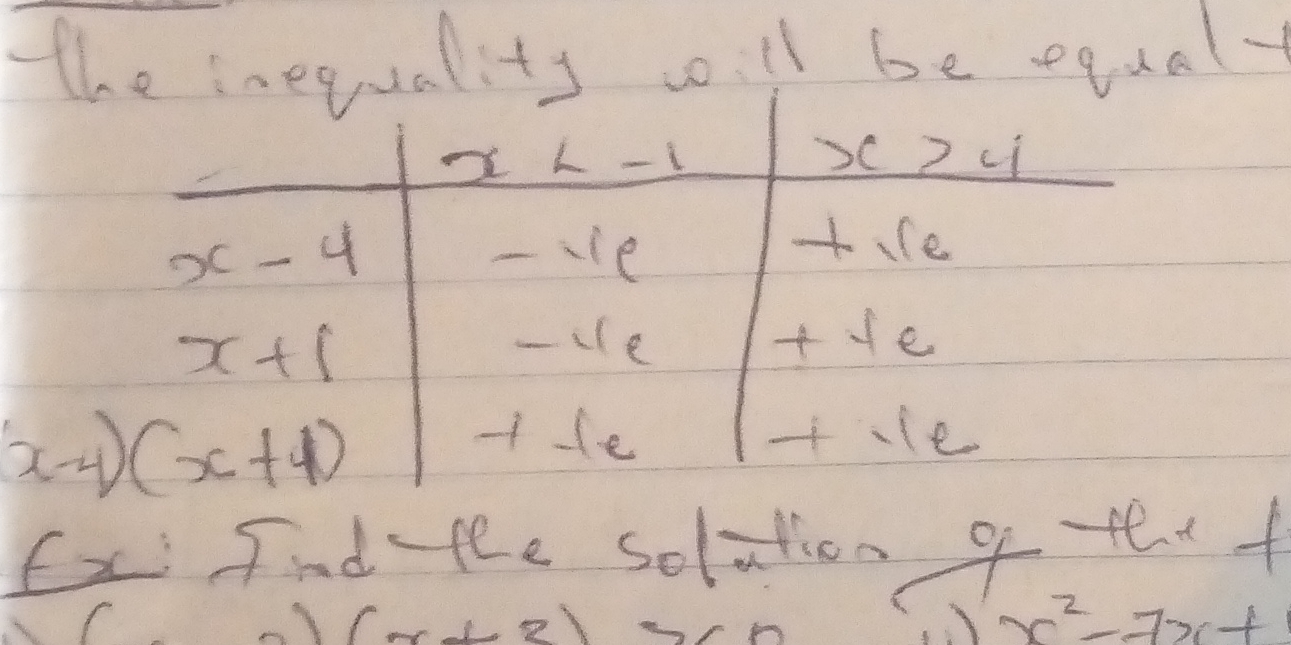 The inequality will be equal t
x < -1 x > 4
x - 4 -ve +ve
x + 1 -ve +ve
(x-4)(x+1) +ve +ve
Ex: Find the solution of the f
x² - 7x +